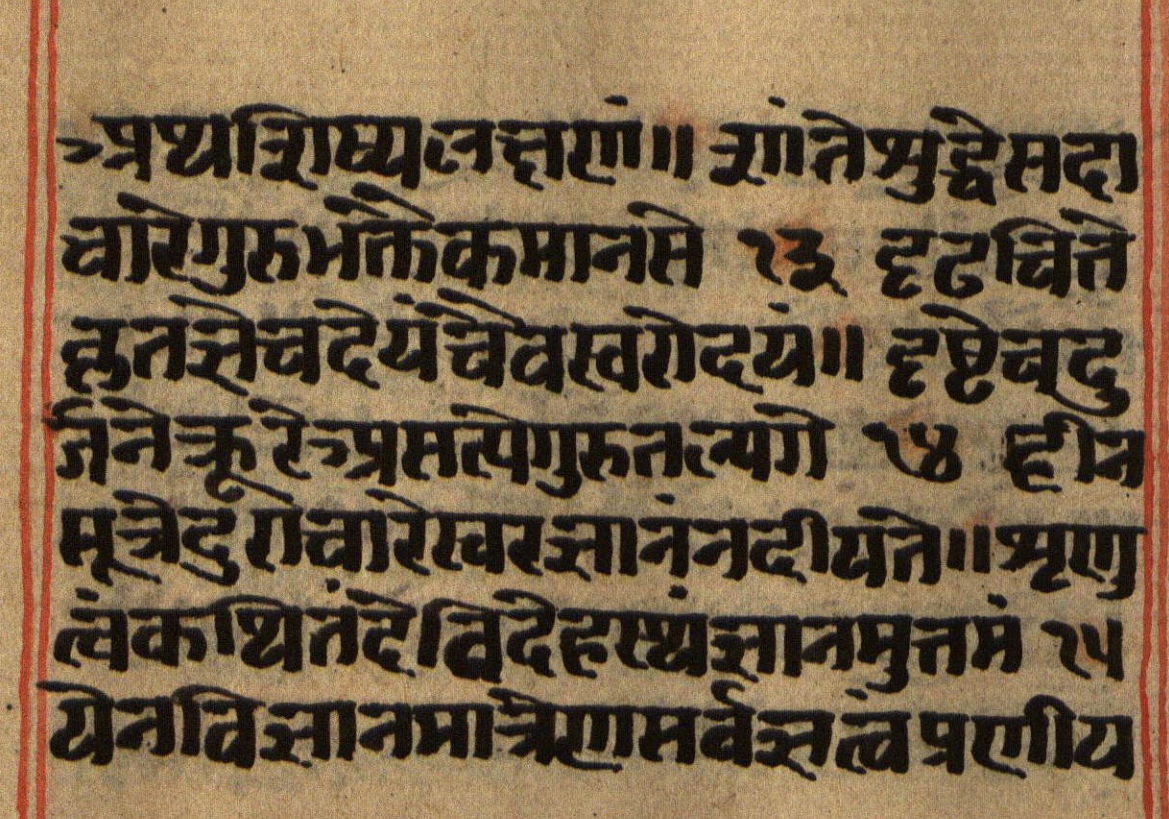 अथशिष्यलक्षणं॥ शांतेशुद्धेसदा
चारेगुरुभक्तैकमानसे १३ दृढचित्ते
कृतज्ञेचदेयंचैवस्वरोदयं॥ दृष्टेचदु
र्जनेक्रूरेअसत्येगुरुतल्पगे १४ हीन
सूत्रेदुराचारेस्वरज्ञानंनदीयते॥शृणु
त्वंकथितंदेविदेहस्थज्ञानमुत्तमं १५
येनविज्ञानमात्रेणसर्वज्ञत्वंप्रणीय